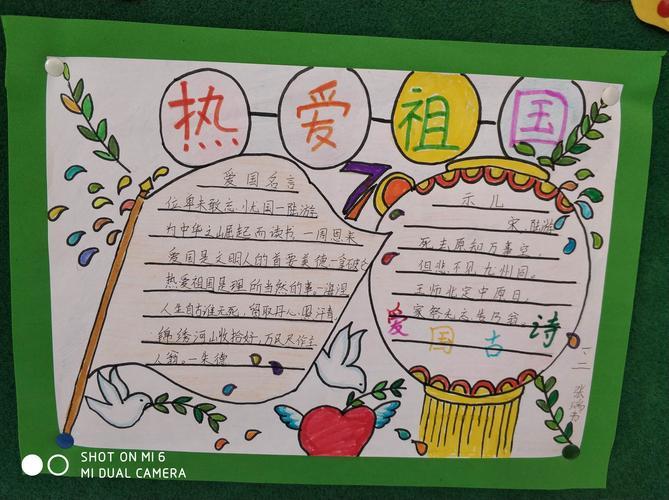 热爱祖国
70
爱国名言
位卑未敢忘忧国—陆游
为中华之崛起而读书—周恩来
爱国是文明人的首要美德—拿破仑
热爱祖国是理所当然的事。—海涅
人生自古谁无死,留取丹心照汗青
锦绣河山收拾好,万民尽作主
人翁。—朱德
示儿
宋 陆游
死去原知万事空,
但悲不见九州同。
王师北定中原日,
家祭无忘告乃翁。
爱国古诗
一、二
SHOT ON MI 6
MI DUAL CAMERA